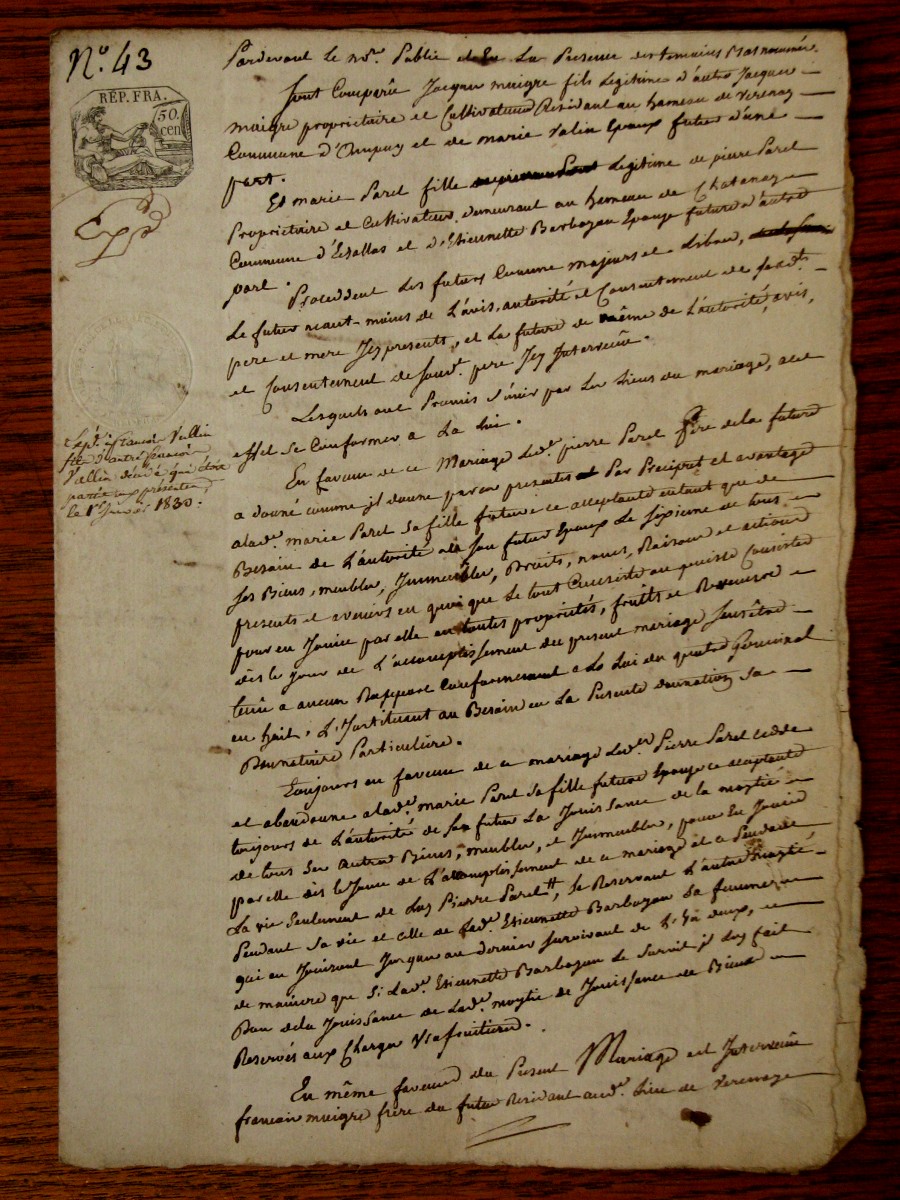 N.º 43
RÉP. FRA.
50. cen
Pardevant le nre. Public et En La Presence des temoins Bas nommés
Sont Comparû Jacques muigre fils Legitime d'autre Jacques
muigre proprietaire et Cultivateur Residant au hameau de Verenay
Commune d'Ampuy et de marie Valin Epoux futur d'une
part.
Et marie Parel fille Legitime de pierre Parel
Proprietaire et Cultivateur demeurant au hameau de Chatanay
Commune d'Echallas et d'Etiennette Barbazan Epouse future d'autre
part.
Procedent les futurs Comme majeurs et Libres,
Le futur neant-moins de L'avis, autorité et Consentement de ses dts.
pere et mere Jcy presents, et La future de même de L'autorité, avis,
et Consentement de son dt. pere Jcy Intervenû.
Lesquels ont Promis s'unir par Les Liens du mariage, a cet
effet se Conformer a La Loi.
En faveur de ce Mariage Led. pierre Parel Père de la future
a donné comme jl donne par ces presentes Par Preciput et avantage
a lad. marie Parel sa fille future ce acceptante entant que de
Besoin de L'autorité de son futur Epoux Le sixieme de tous
ses Biens, meubles, Jmmeubles, Droits, noms, Raisons et actions
presents et avenirs en quoi que Le tout Consiste ou puisse Consister
pour en Jouir par elle en toutes propriétés, fruits et Revenus
dès le jour de L'accomplissement du present mariage sans être
tenue a aucun Rapport Conformement a La Loi du quatre Germinal
an huit, L'Jnstituant au Besoin en La Presente donnation sa
Donnataire Particuliere.
Toujours en faveur de ce mariage Led. Pierre Parel cedde
et abandonne a lad. marie Parel sa fille future Epouse ce acceptante
toujours de L'autorité de son futur La Jouissance de la moytié
de tous ses autres Biens, meubles, et Jmmeubles, pour En Jouir
par elle dès le Jour de L'accomplissement de ce mariage et a Pendant
La vie seulement de Luy Pierre Parel, se Reservant L'autre moytié
Pendant sa vie et celle de Lad. Etiennette Barbazan sa femme
qui en Jouiront Jusqu'au dernier survivant de
de maniere que si Lad. Etiennette Barbazan Le survit jl Luy fait
Don de la Jouissance de Lad. moytié de Jouissance de Biens
Reservés aux Charges Usufruitieres.
En même faveur du Present Mariage est Intervenû
francois muigre frère du futur Residant aud. Lieu de Verenay
Expt. a Francois Vallin
fils d'autre francois
Vallin décédé qui étoit
partie aux présentes,
le 1er 1830.